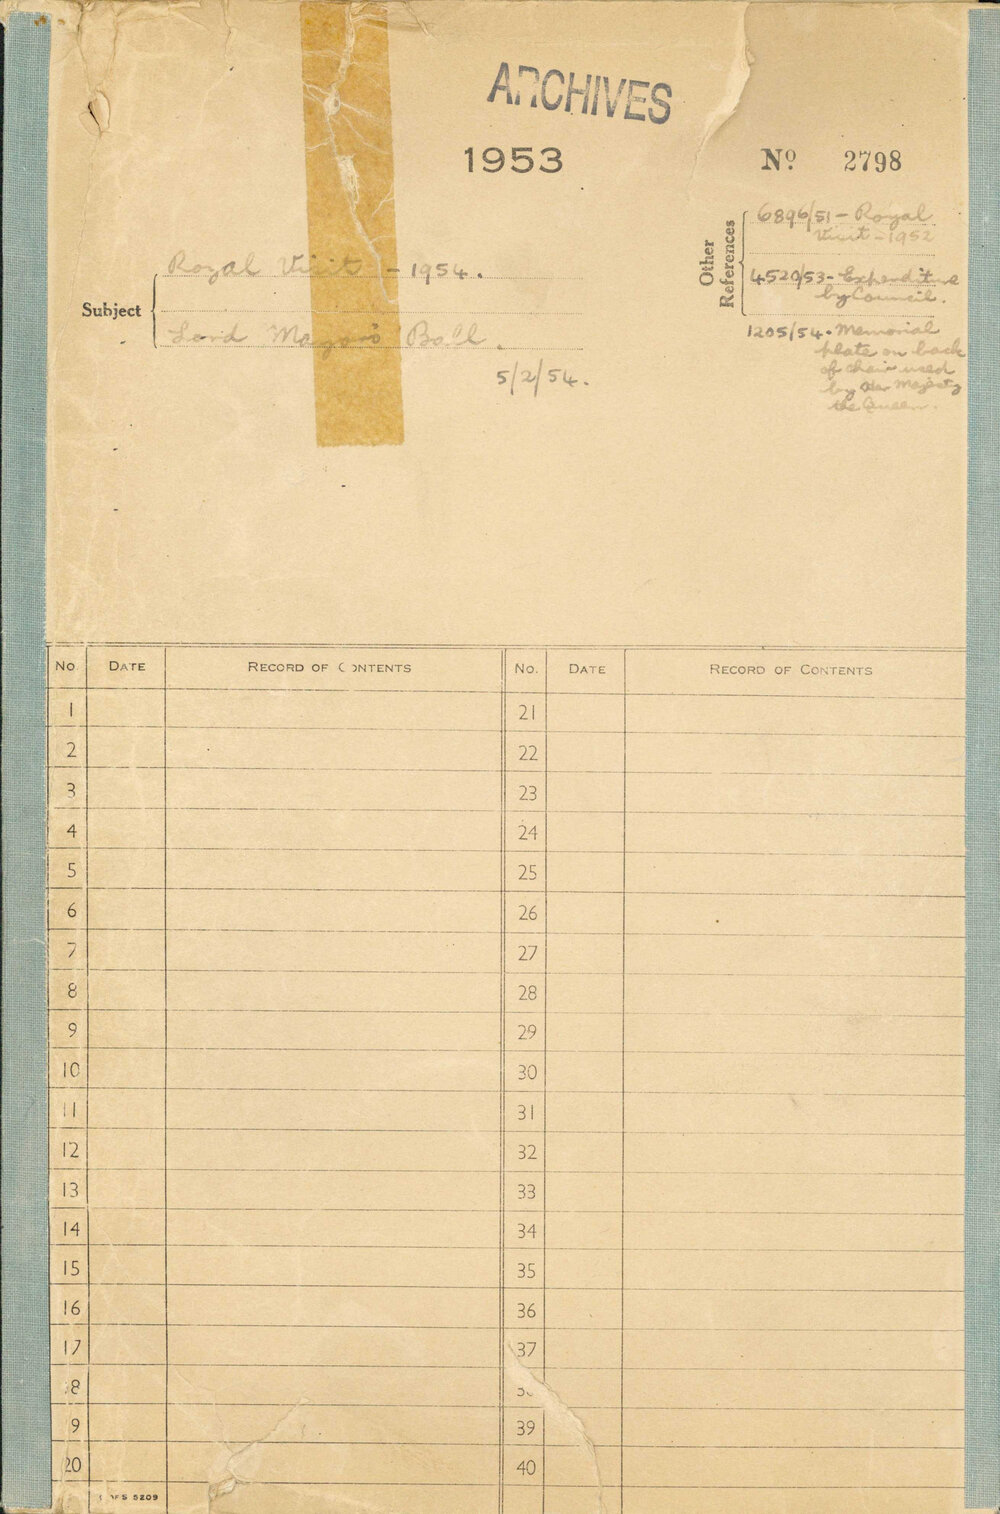 ARCHIVES
1953
Nº 2798
Subject
Royal Visit - 1954.
Lord Mayor's Ball.
5/2/54.
Other References
6896/51 - Royal
Visit - 1952
4520/53 - Expenditure
by Council.
1205/54. Memorial
plate on back
of chair used
by Her Majesty
the Queen.
No. DATE RECORD OF CONTENTS No. DATE RECORD OF CONTENTS
1 21
2 22
3 23
4 24
5 25
6 26
7 27
8 28
9 29
10 30
11 31
12 32
13 33
14 34
15 35
16 36
17 37
8 3
9 39
20 40
5209